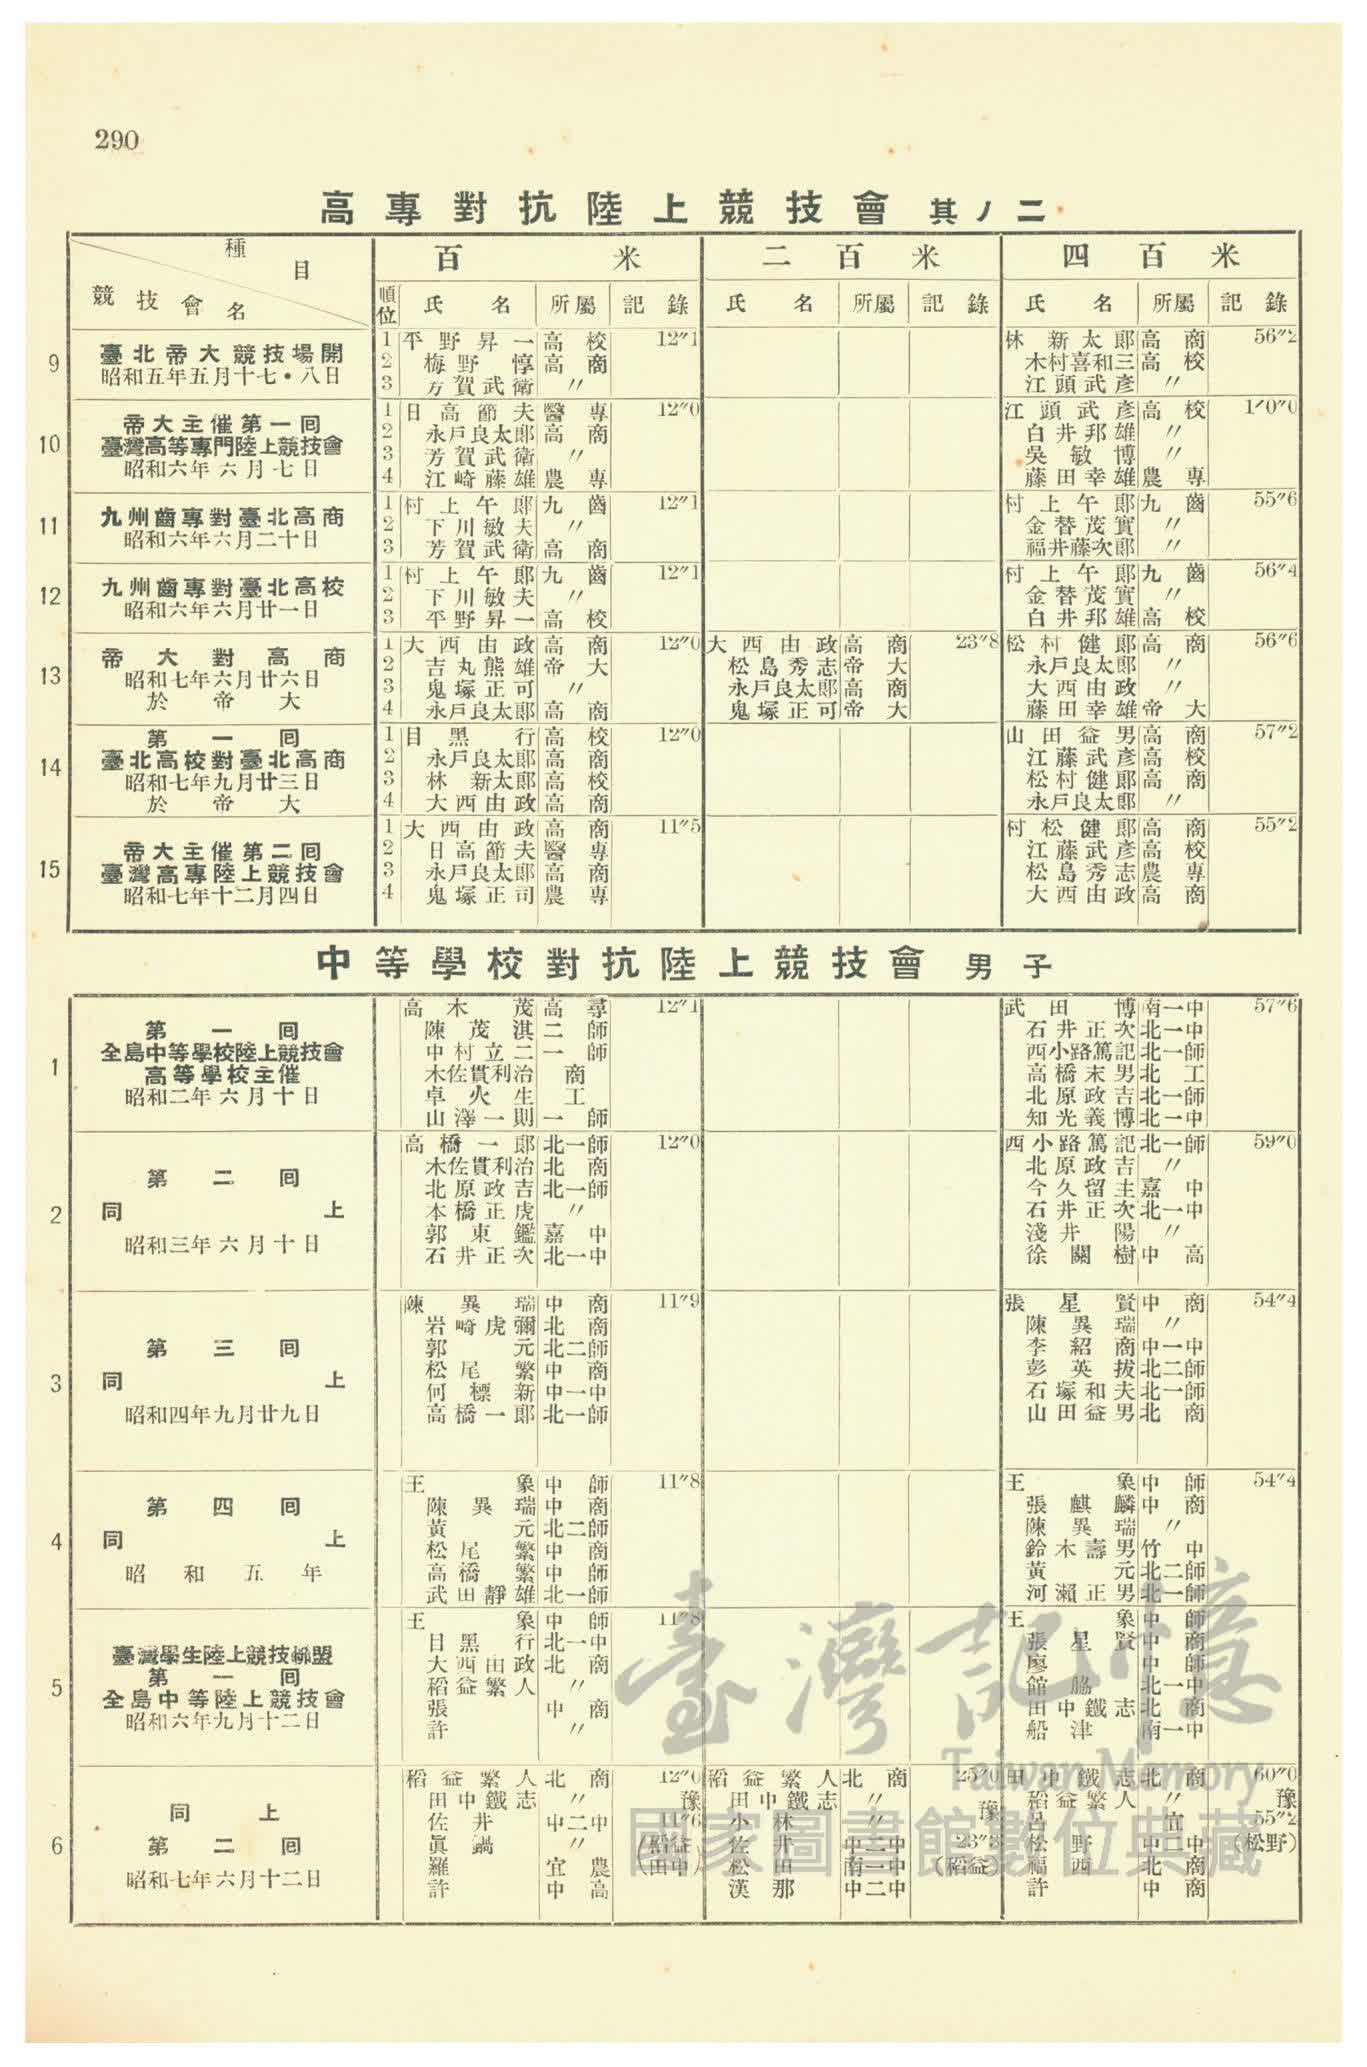 290
高專對抗陸上競技會 其ノ二
種目 競技會名 百米 二百米 四百米
順位 氏名 所屬 記錄 氏名 所屬 記錄 氏名 所屬 記錄
9
臺北帝大競技場開
昭和五年五月十七・八日
1 平野昇一 高校 12″1 林新太郎 高商 56″2
2 梅野惇 高商 木村喜和三 高校
3 芳賀武衛 〃 江頭武彥 〃
10
帝大主催第一囘
臺灣高等專門陸上競技會
昭和六年六月七日
1 日高節夫 醫專 12″0 江頭武彥 高校 1′0″0
2 永戶良太郎 高商 白井邦雄 〃
3 芳賀武衛 〃 吳敏博 〃
4 江崎藤雄 農專 藤田幸雄 農專
11
九州齒專對臺北高商
昭和六年六月二十日
1 村上午郎 九齒 12″1 村上午郎 九齒 55″6
2 下川敏夫 〃 金替茂實 〃
3 芳賀武衛 高商 福井藤次郎 〃
12
九州齒專對臺北高校
昭和六年六月廿一日
1 村上午郎 九齒 12″1 村上午郎 九齒 56″4
2 下川敏夫 〃 金替茂實 〃
3 平野昇一 高校 白井邦雄 高校
13
帝大對高商
昭和七年六月廿六日
於帝大
1 大西由政 高商 12″0 大西由政 高商 23″8 松村健郎 高商 56″6
2 吉丸熊雄 帝大 松島秀志 帝大 永戶良太郎 〃
3 鬼塚正可 〃 永戶良太郎 高商 大西由政 〃
4 永戶良太郎 高商 鬼塚正可 帝大 藤田幸雄 帝大
14
第一囘
臺北高校對臺北高商
昭和七年九月廿三日
於帝大
1 目黑行 高校 12″0 山田益男 高商 57″2
2 永戶良太郎 高商 江藤武彥 高校
3 林新太郎 高校 松村健郎 高商
4 大西由政 高商 永戶良太郎 〃
15
帝大主催第二囘
臺灣高專陸上競技會
昭和七年十二月四日
1 大西由政 高商 11″5 村松健郎 高商 55″2
2 日高節夫 醫專 江藤武彥 高校
3 永戶良太郎 高商 松島秀志 農專
4 鬼塚正司 農專 大西由政 高商
中等學校對抗陸上競技會 男子
1
第一囘
全島中等學校陸上競技會
高等學校主催
昭和二年六月十日
高木茂 高尋 12″1 武田博 南一中 57″6
陳茂淇 二師 石井正次 北一中
中村立二 一師 西小路篤記 北一師
木佐貫利治 商 高橋末男 北工
卓火生 工 北原政吉 北一師
山澤一則 一師 知光義博 北一中
2
第二囘
同上
昭和三年六月十日
高橋一郎 北一師 12″0 西小路篤記 北一師 59″0
木佐貫利治 北商 北原政吉 〃
北原政吉 北一師 今久留主 嘉中
本橋正虎 〃 石井正次 北一中
郭東鑑 嘉中 淺井陽 〃
石井正次 北一中 徐關樹 中高
3
第三囘
同上
昭和四年九月廿九日
陳異瑞 中商 11″9 張星賢 中商 54″4
岩崎虎彌 北商 陳異瑞 〃
郭元 北二師 李紹商 中一中
松尾繁 中商 彭英拔 北二師
何標新 中一中 石塚和夫 北一師
高橋一郎 北一師 山田益男 北商
4
第四囘
同上
昭和五年
王象 中師 11″8 王象 中師 54″4
陳異瑞 中商 張麒麟 中商
黃元 北二師 陳異瑞 〃
松尾繁 中商 鈴木壽男 竹中
高橋繁 中師 黃元 北二師
武田靜雄 北一師 河瀨正男 北一師
5
臺灣學生陸上競技聯盟
第一囘
全島中等陸上競技會
昭和六年九月十二日
王象 中師 11″8 王象 中師
目黑行 北一中 張星賢 中商
大西由政 北商 廖 中師
稻益繁人 〃 館脇 北一中
張 中商 田中鐵志 北商
許 〃 船津 南一中
6
同上
第二囘
昭和七年六月十二日
稻益繁人 北商 12″0 稻益繁人 北商 25″0 田中鐵志 北商 60″0
田中鐵志 〃 豫 田中鐵志 〃 豫 稻益繁人 〃 豫
佐井 中二中 11″6 小林 〃 呂 宜 55″2
眞鍋 〃 (稻益) 佐井 中二中 23″8 松野 中二中 (松野)
羅 宜農 (田中) 松田 南一中 (稻益) 福西 北商
許 中高 漢那 中二中 許 中商
臺灣記憶
Taiwan Memory
國家圖書館數位典藏